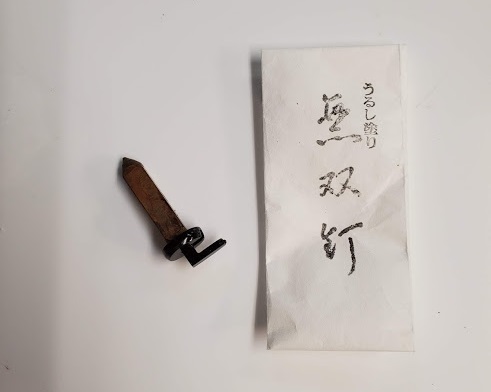 うるし塗り
無双釘